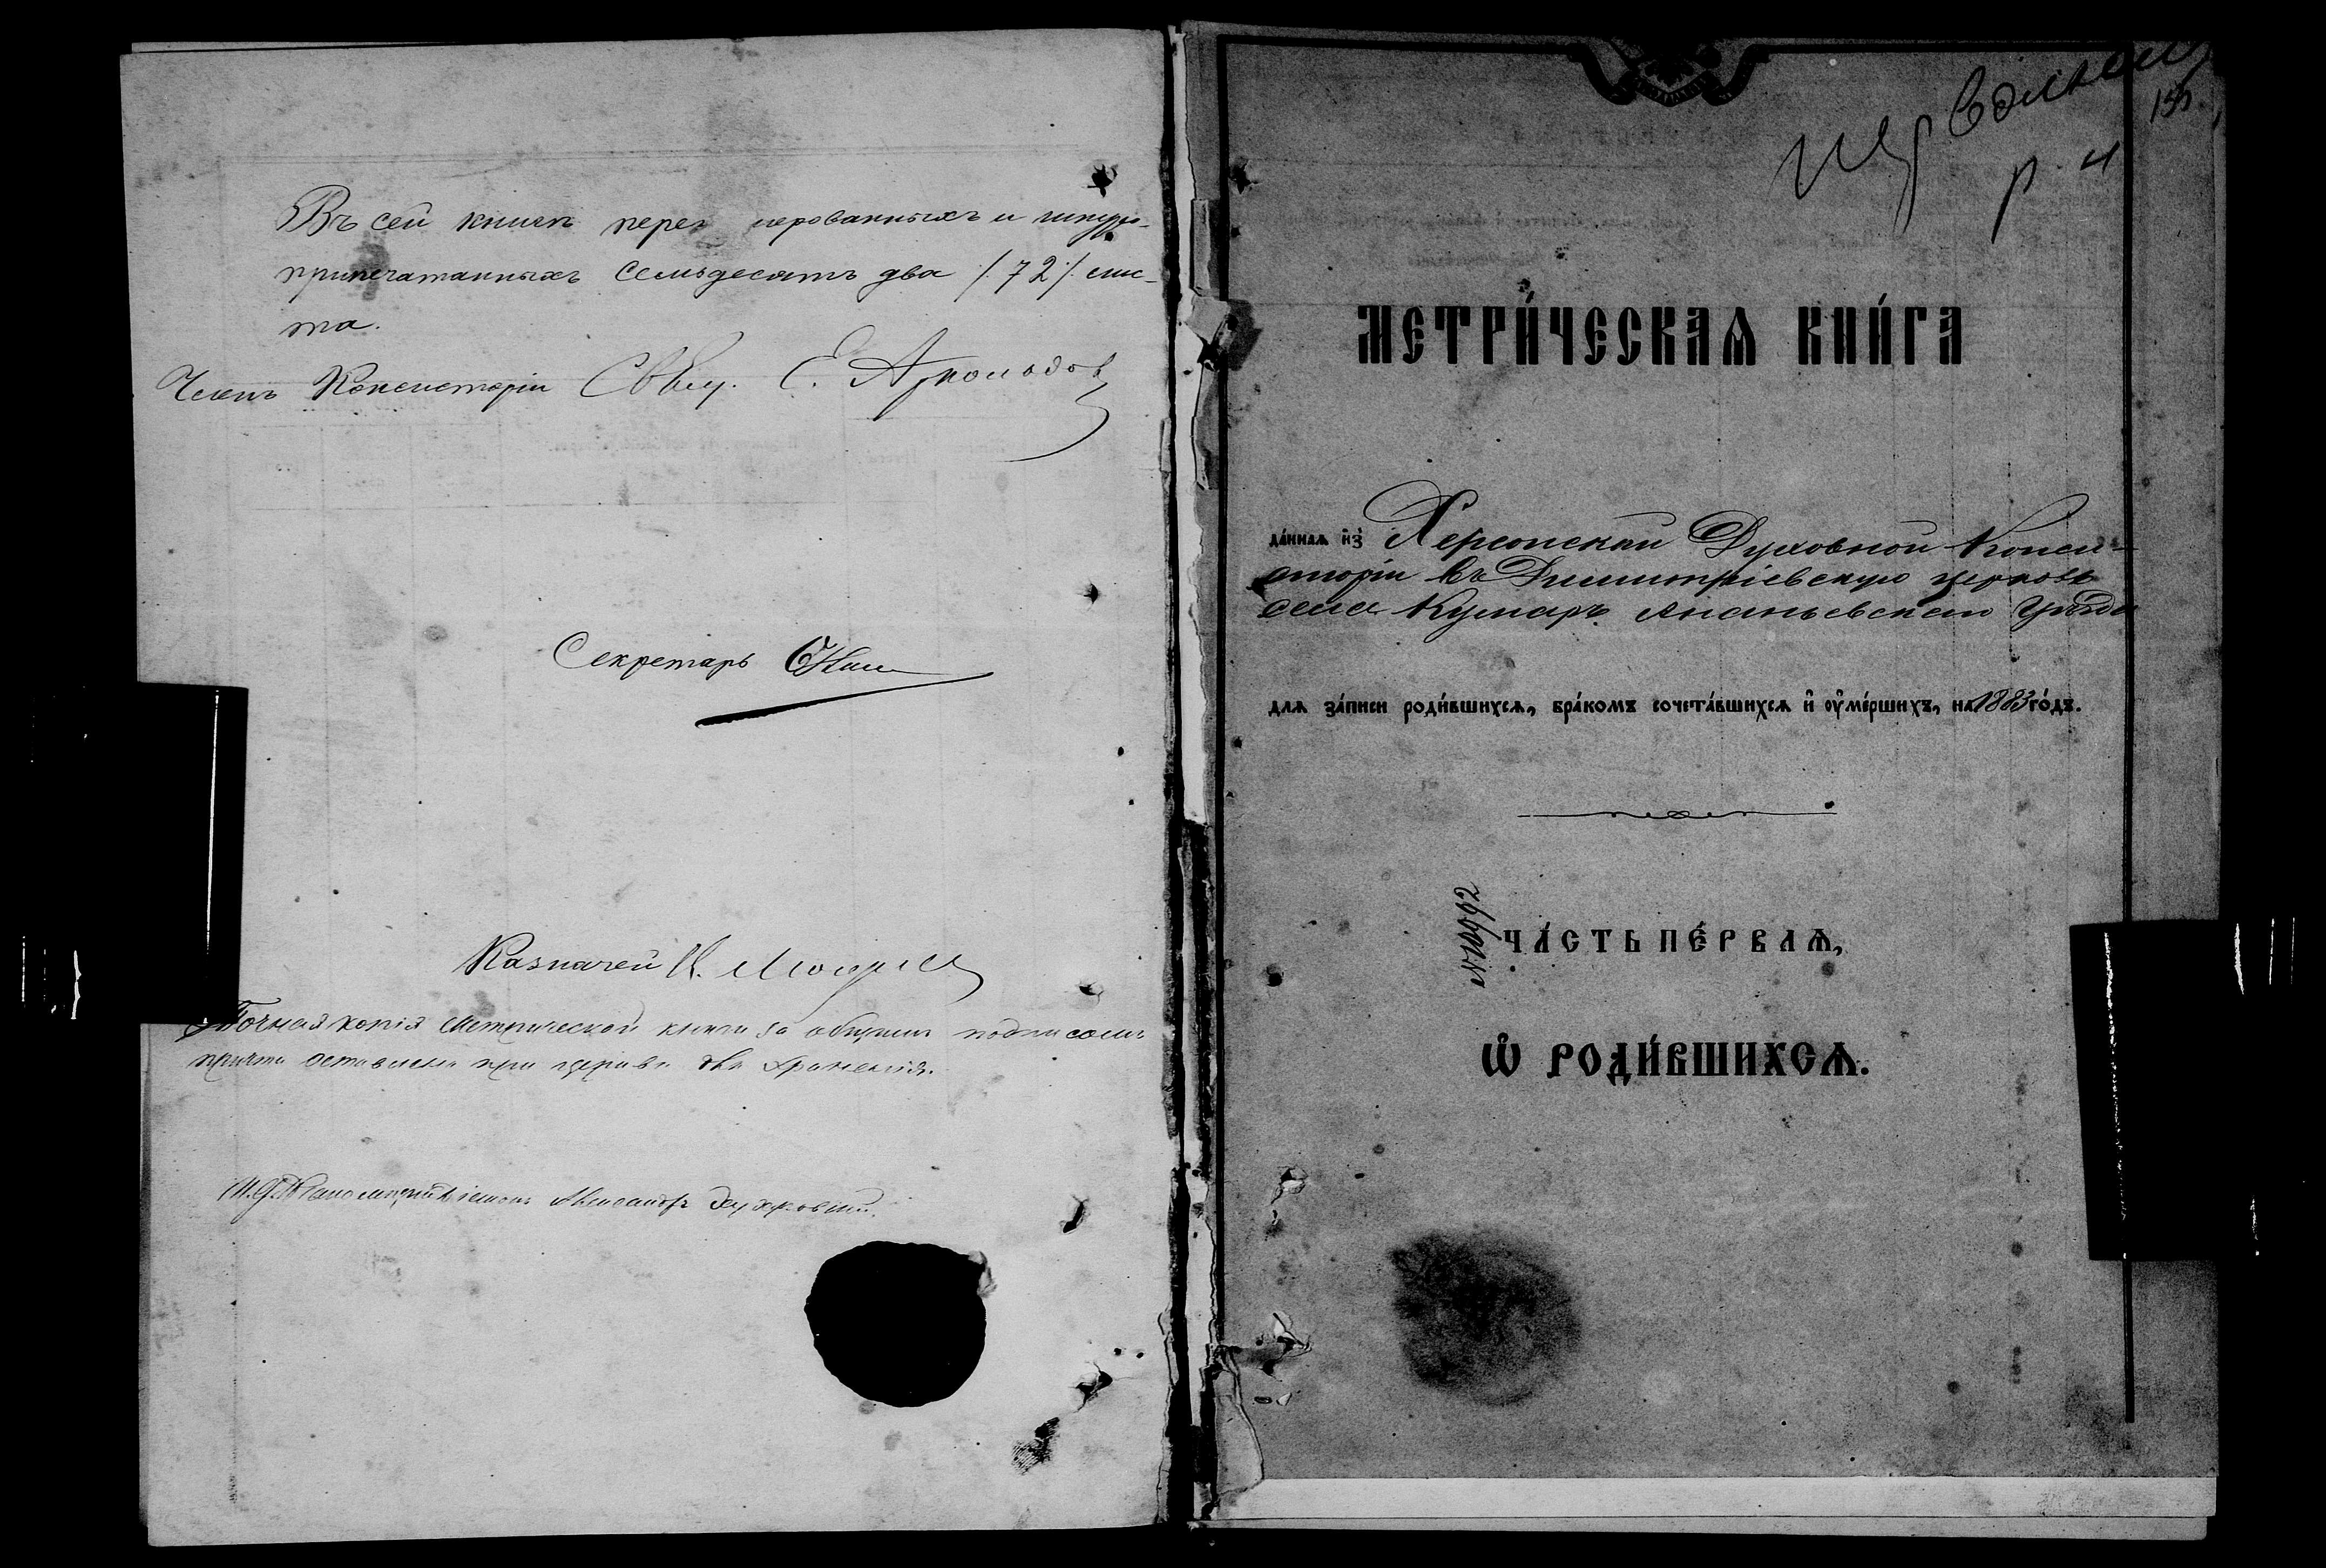 Въ сей книгѣ перену­мерованныхъ и шнуро-
припечатанныхъ семьдесятъ два /:72:/ лис-
та.
Членъ Консисторіи Свящ. С.
Секретарь
Казначей
Точная копія метрической книги за общимъ подписомъ
причта оставлена при церкви для храненія.
Благочинный Священникъ Александръ
Первомайский
р-н
МЕТРИ́ЧЕСКАѦ КНИ́ГА
да́ннаѧ и҆зъ Херсонской Духовной Конси-
сторіи въ Димитріевскую церковь
села Кумаръ Ананьевскаго уѣзда
длѧ за́писи роди́вшихсѧ, бра́комъ сочета́вшихсѧ и҆ ᲂу҆ме́ршихъ, на 1883 го́дъ.
№ 10992
ЧА́СТЬ ПЕ́РВАѦ,
Ѡ҆ РОДИ́ВШИХСѦ.